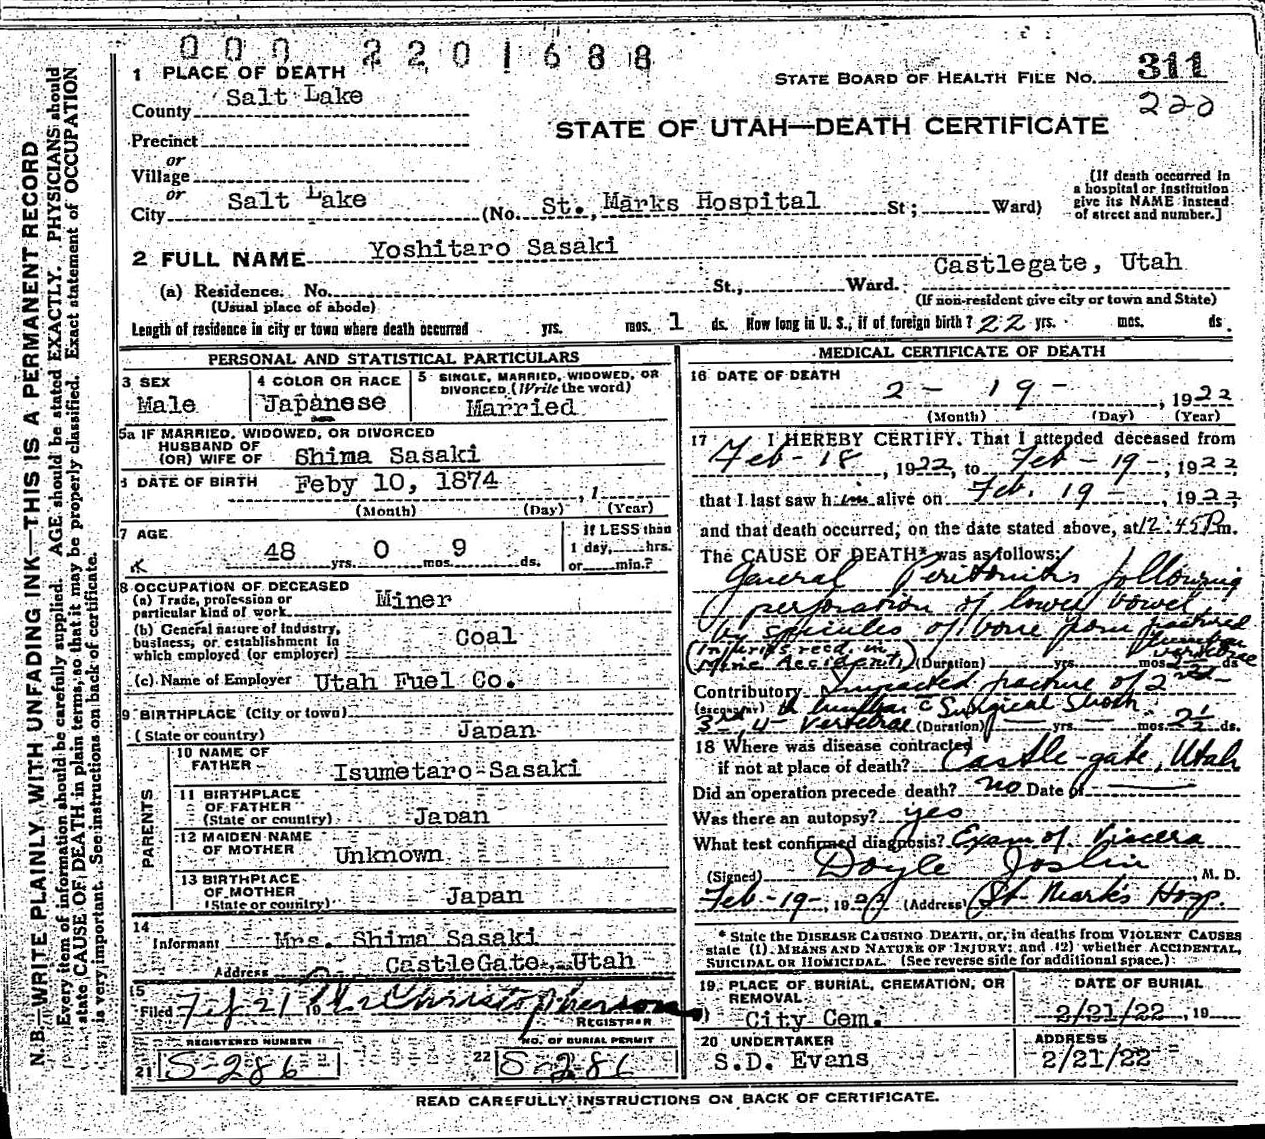 0 0 0 2 2 0 1 6 8 8
1 PLACE OF DEATH
STATE BOARD OF HEALTH FILE NO. 311
County Salt Lake
220
STATE OF UTAH—DEATH CERTIFICATE
Precinct
or
Village
or
City Salt Lake (No. St., Marks Hospital St; Ward)
(If death occurred in
a hospital or institution
give its NAME instead
of street and number.]
2 FULL NAME Yoshitaro Sasaki
(a) Residence. No. St., Ward. Castlegate, Utah
(Usual place of abode) (If non-resident give city or town and State)
Length of residence in city or town where death occurred yrs. mos. 1 ds. How long in U. S., if of foreign birth? 22 yrs. mos. ds.
PERSONAL AND STATISTICAL PARTICULARS
3 SEX
Male
4 COLOR OR RACE
Japanese
5 SINGLE, MARRIED, WIDOWED, OR
DIVORCED (Write the word)
Married
5a IF MARRIED, WIDOWED, OR DIVORCED
HUSBAND OF
(OR) WIFE OF Shima Sasaki
6 DATE OF BIRTH Feby 10, 1874 , 1
(Month) (Day) (Year)
7 AGE
48 yrs. 0 mos. 9 ds.
If LESS than
1 day, hrs.
or min.?
8 OCCUPATION OF DECEASED
(a) Trade, profession or
particular kind of work Miner
(b) General nature of industry,
business, or establishment in
which employed (or employer) Coal
(c) Name of Employer Utah Fuel Co.
9 BIRTHPLACE (City or town)
(State or country) Japan
PARENTS
10 NAME OF
FATHER Isumetaro Sasaki
11 BIRTHPLACE
OF FATHER
(State or country) Japan
12 MAIDEN NAME
OF MOTHER Unknown
13 BIRTHPLACE
OF MOTHER
(State or country) Japan
14
Informant Mrs. Shima Sasaki
Address CastleGate, Utah
15
Filed Feb 21 19
REGISTRAR
REGISTERED NUMBER
21 S-286
NO. OF BURIAL PERMIT
22 S-286
MEDICAL CERTIFICATE OF DEATH
16 DATE OF DEATH
2 - 19 - , 1922
(Month) (Day) (Year)
17 I HEREBY CERTIFY. That I attended deceased from
Feb - 18 , 1922, to Feb - 19 - , 1922,
that I last saw him alive on Feb. 19 - , 1922,
and that death occurred, on the date stated above, at 12:45 P.m.
The CAUSE OF DEATH* was as follows:
General Peritonitis following
perforation of lower bowel,
by spicules of bone from fractured
lumbar
vertebrae
(Injuries recd. in
Mine Accident) (Duration) yrs. mos. 2 ds
Contributory Impacted fracture of 2nd
(secondary) lumbar c Surgical Shock
3rd, 4 - Vertebrae (Duration) yrs. mos. 2½ ds.
18 Where was disease contracted
if not at place of death? Castle-gate, Utah
Did an operation precede death? no Date of
Was there an autopsy? yes
What test confirmed diagnosis? Exam of Viscera
(Signed) Doyle Joslin, M. D.
Feb - 19 -, 1922 (Address) St. Mark's Hosp.
* State the DISEASE CAUSING DEATH, or, in deaths from VIOLENT CAUSES
state (1) MEANS AND NATURE OF INJURY; and (2) whether ACCIDENTAL,
SUICIDAL OR HOMICIDAL. (See reverse side for additional space.)
19 PLACE OF BURIAL, CREMATION, OR
REMOVAL
City Cem.
DATE OF BURIAL
2/21/22 , 19
20 UNDERTAKER
S.D. Evans
ADDRESS
2/21/22
READ CAREFULLY INSTRUCTIONS ON BACK OF CERTIFICATE.
N. B.—WRITE PLAINLY, WITH UNFADING INK—THIS IS A PERMANENT RECORD
Every item of information should be carefully supplied. AGE should be stated EXACTLY. PHYSICIANS should
state CAUSE OF DEATH in plain terms, so that it may be properly classified. Exact statement of OCCUPATION
is very important. See instructions on back of certificate.